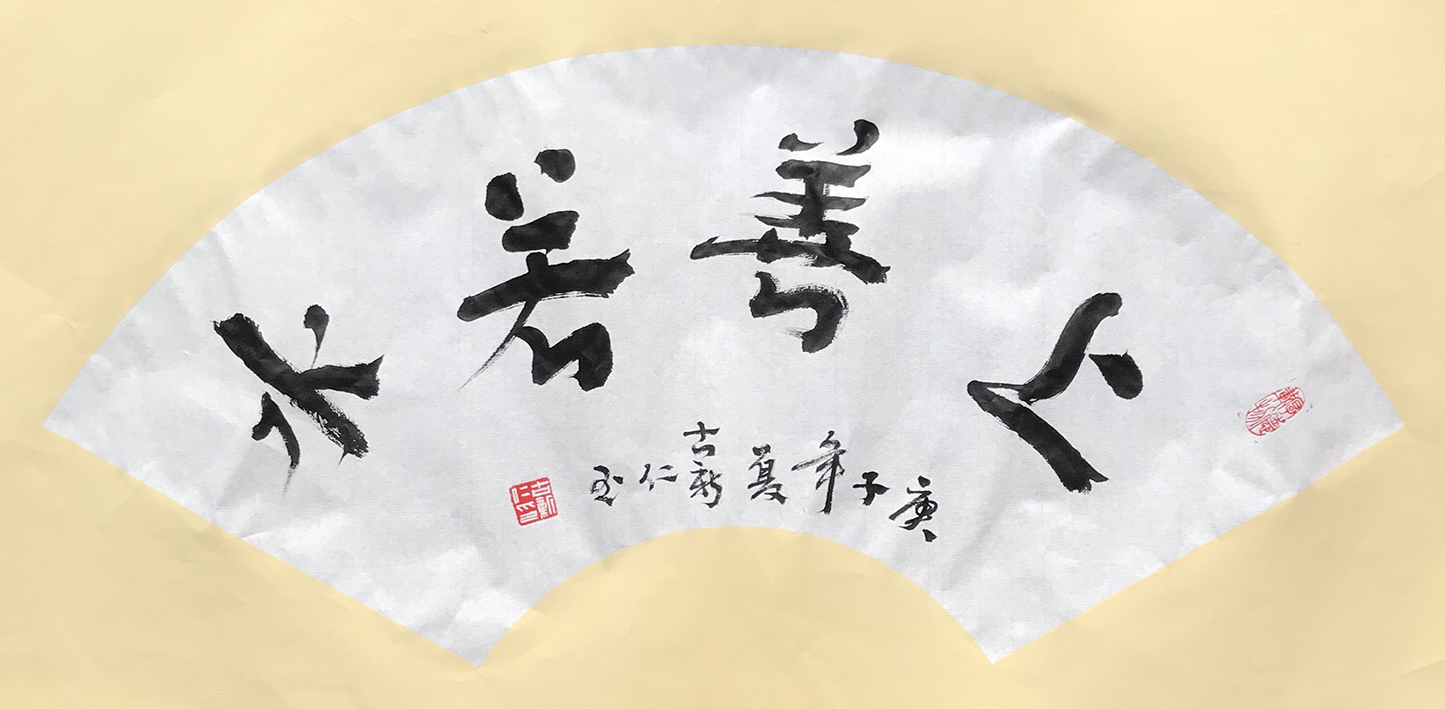 上善若水
庚子年夏古新仁书
古新仁印